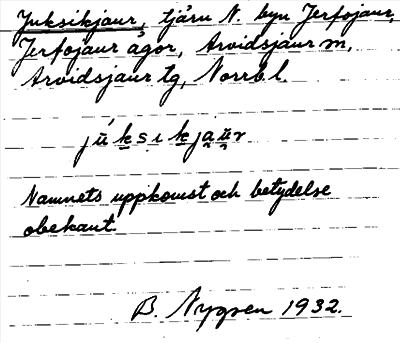 Juksikjaur, tjärn N. byn Jerfojaur,
Jerfojaur ägor, Arvidsjaur m,
Arvidsjaur tg, Norrb l.
jū́ksikjau̯r
Namnets uppkomst och betydelse
obekant.
B. Nygren 1932.